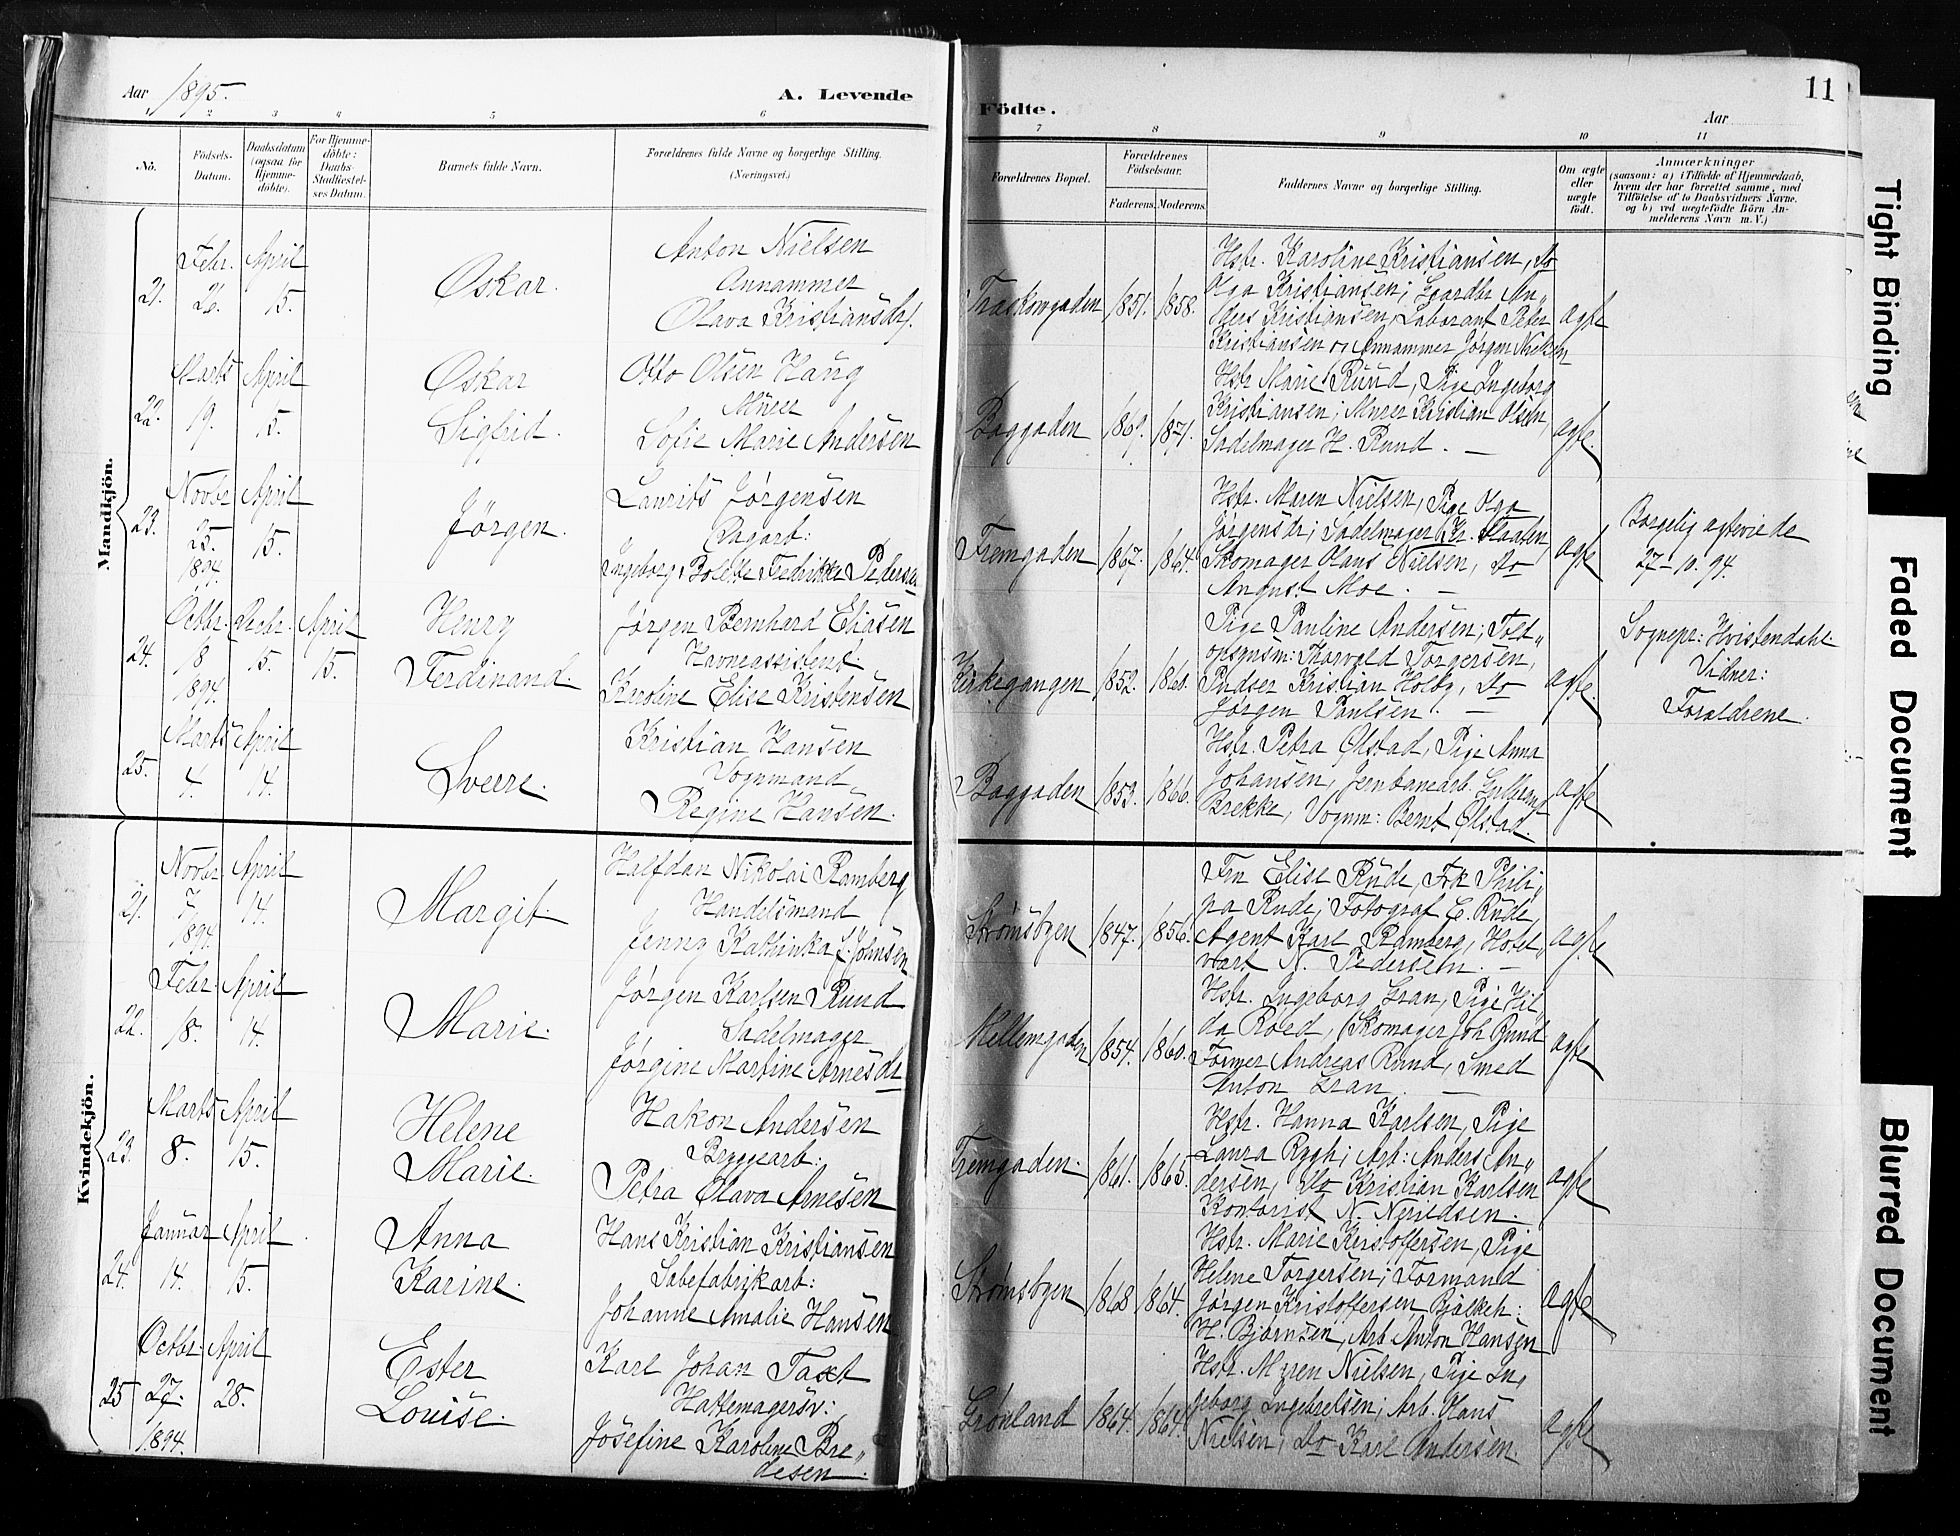 Aar 1895.
A. Levende
Födte.
Aar
11
1 2 3 4 5 6
7 8 9 10 11
No.
Födsels-
Datum.
Daabsdatum
(ogsaa for
Hjemme-
döbte).
For Hjemme-
döbte:
Daabs-
Stadfæstel-
ses Datum.
Barnets fulde Navn.
Forældrenes fulde Navne og borgerlige Stilling.
(Næringsvei.)
Forældrenes Bopæl.
Forældrenes
Födselsaar.
Faderens. Moderens.
Faddernes Navne og borgerlige Stilling.
Om ægte
eller
uægte
født.
Anmærkninger
(saasom: a) i Tilfælde af Hjemmedaab,
hvem der har forrettet samme, med
Tilföielse af to Daabsvidners Navne.
og b) ved uægtefødte Börn An-
melderens Navn m. V.)
Mandkjön.
21.
Febr.
26.
April
15.
Oskar.
Anton Nielsen
Annammer
Olava Kristiansdr.
Træskomgaden
1851. 1858.
Hstr. Karoline Kristiansen, Do
Olga Kristiansen; Gaardbr An„
ders Kristiansen, Laborant Peter
Kristiansen og Annammer Jørgen Nielsen
ægte
22.
Marts
19.
April
15.
Oskar
Sigfrid.
Otto Olsen Haug
Murer
Sofie Marie Andersen
Baggaden
1869. 1871.
Hstr Marie Ruud, Pige Ingeborg
Kristiansen; Murer Kristian Olsen,
Sadelmager H. Ruud. —
ægte.
23.
Novbr
25.
1894.
April
15.
Jørgen.
Laurits Jørgensen
Dagarb:
Ingeborg Bolette Fredrikke Pedersen
Fremgaden
1867. 1864.
Hstr. Maren Nielsen, Pige Olga
Jørgensdr; Sadelmager Kr. Haaten,
Skomager Olaus Nielsen, Do
August Moe. —
ægte
Borgelig ægteviede
27-10.94.
24.
Octbr.
18
1894.
Decbr.
15.
April
15.
Henry
Ferdinand.
Jørgen Bernhard Eliasen
Havneassistent.
Karoline Elise Kristensen
Kirkegangen
1852. 1860.
Pige Pauline Andersen; Told„
opsynsm: Thorvald Torgersen,
Pudser Kristian Holby, Do
Jørgen Paulsen. —
ægte.
Sognepr: Hvistendahl
Vidner:
Forældrene.
25.
Marts
4.
April
14.
Sverre.
Kristian Hansen
Vognmand,
Regine Hansen.
Baggaden
1853. 1866.
Hstr. Petra Ølstad, Pige Anna
Johansen, Jernbanearb. Gulbrand
Brekke, Vognm: Bernt Ølstad.
ægte
Kvindekjön.
21.
Novbr.
7
1894.
April
14.
Margit.
Halfdan Nikolai Ramberg
Handelsmand
Jenny Kathinka f. Johnsen
Strømsbyen
1847. 1856.
Fru Elise Rude, Frk Phili„
pa Rude; Fotograf E. Rude,
Agent Karl Ramberg, Hotel„
vært N. Pedersen. —
ægte
22.
Febr.
18.
April
14.
Marie.
Jørgen Karlsen Ruud
Sadelmager
Jørgine Martine Arnesdr
Mellemgaden
1854. 1860.
Hstr. Ingeborg Gran, Pige Hil„
da Roed, Skomager Joh Ruud
Former Andreas Ruud, Smed
Anton Gran. —
ægte
23.
Marts
8.
April
15.
Helene
Marie.
Hakon Andersen
Bryggearb:
Petra Olava Arnesen
Fremgaden.
1861. 1865.
Hstr. Hanna Karlsen, Pige
Laura Rygh; Arb: Anders An„
dersen, Do Kristian Karlsen
Kontorist N. Nerüdsen.
ægte
24.
Januar
14.
April
15.
Anna
Karine.
Hans Kristian Kristiansen
Sæbefabrikarb:
Johanne Amalie Hansen
Strømsbyen
1868 1864.
Hstr. Marie Kristoffersen, Pige
Helene Torgersen; Formand
Jørgen Kristoffersen, Bjælkeh:
H. Bjørnsen, Arb Anton Hansen
ægte
25
Octbr.
27.
1894.
April
28.
Ester
Louise.
Karl Johan Taxt
Hattemagersv:
Josefine Karoline Bre„
desen.
Grønland
1864. 1864.
Hstr. Maren Nielsen, Pige In„
geborg Ingebretsen; Arb. Olaus
Nielsen, Do Karl Andersen.
ægte
Tight Binding
Faded Document
Blurred Document